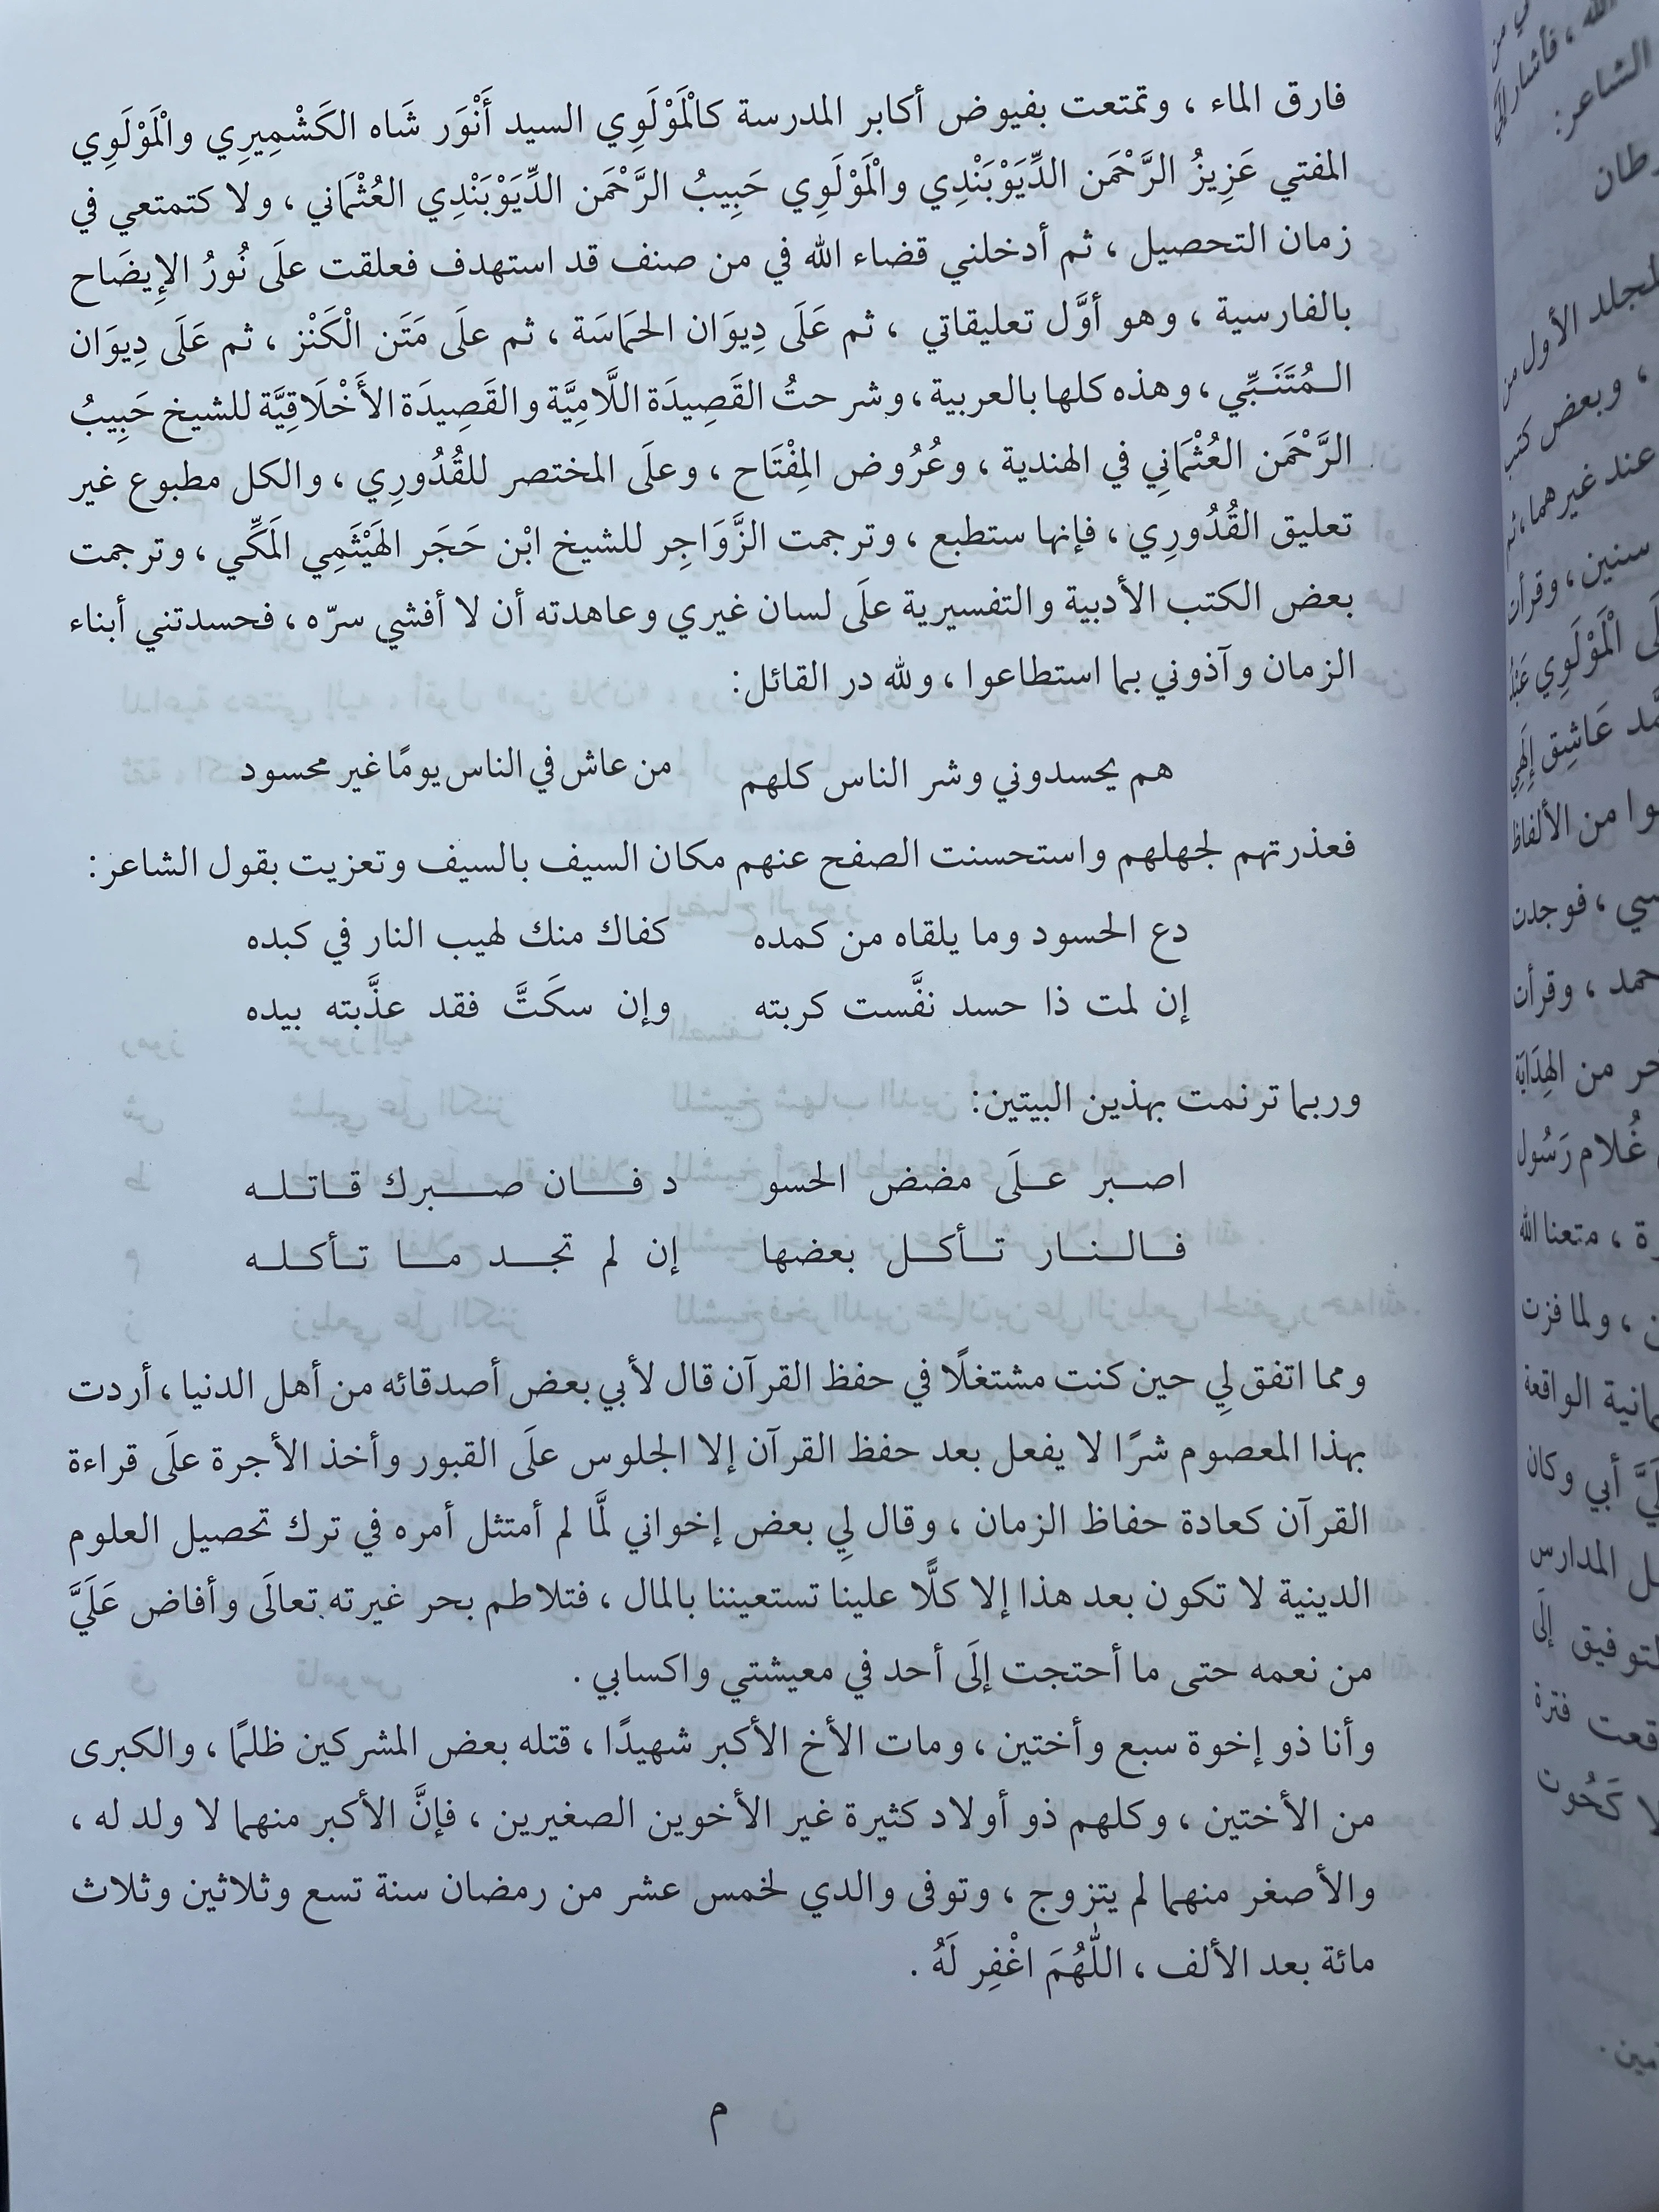 فارق الماء ، وتمتعت بفيوض أكابر المدرسة كالْمَوْلَوِي السيد أَنْوَر شَاه الكَشْمِيرِي والْمَوْلَوِي
المفتي عَزِيزُ الرَّحْمَن الدِّيَوْبَنْدِي والْمَوْلَوِي حَبِيبُ الرَّحْمَن الدِّيَوْبَنْدِي العُثْمَاني ، ولا كتمتعي في
زمان التحصيل ، ثم أدخلني قضاء الله في من صنف قد استهدف فعلقت علَى نُورُ الإِيضَاح
بالفارسية ، وهو أوَّل تعليقاتي ، ثم عَلَى دِيوَان الحَمَاسَة ، ثم علَى مَتَن الْكَنْز ، ثم عَلَى دِيوَان
الـمُتَنَـبِّي ، وهذه كلها بالعربية ، وشرحتُ القَصِيدَة اللَّامِيَّة والقَصِيدَة الأَخْلَاقِيَّة للشيخ حَبِيبُ
الرَّحْمَن العُثْمَانِي في الهندية ، وعُرُوض المِفْتَاح ، وعلَى المختصر للقُدُورِي ، والكل مطبوع غير
تعليق القُدُورِي ، فإنها ستطبع ، وترجمت الزَّوَاجِر للشيخ ابْن حَجَر الهَيْثَمِي المَكِّي ، وترجمت
بعض الكتب الأدبية والتفسيرية علَى لسان غيري وعاهدته أن لا أفشي سرّه ، فحسدتني أبناء
الزمان وآذوني بما استطاعوا ، ولله در القائل:
هم يحسدوني وشر الناس كلهم من عاش في الناس يومًا غير محسود
فعذرتهم لجهلهم واستحسنت الصفح عنهم مكان السيف بالسيف وتعزيت بقول الشاعر:
دع الحسود وما يلقاه من كمده كفاك منك لهيب النار في كبده
إن لمت ذا حسد نفَّست كربته وإن سكَتَّ فقد عذَّبته بيده
وربما ترنمت بهذين البيتين:
اصـبر عـلَى مضض الحسو د فـــان صـــبرك قـاتلــه
فـالـنـار تـأكـل بعضها إن لم تجــد مــا تـأكلــه
ومما اتفق لِي حين كنت مشتغلًا في حفظ القرآن قال لأبي بعض أصدقائه من أهل الدنيا ، أردت
بهذا المعصوم شرًا لا يفعل بعد حفظ القرآن إلا الجلوس علَى القبور وأخذ الأجرة علَى قراءة
القرآن كعادة حفاظ الزمان ، وقال لِي بعض إخواني لمَّا لم أمتثل أمره في ترك تحصيل العلوم
الدينية لا تكون بعد هذا إلا كلًّا علينا تستعيننا بالمال ، فتلاطم بحر غيرته تعالَى وأفاض عَلَيَّ
من نعمه حتى ما أحتجت إلَى أحد في معيشتي واكسابي .
وأنا ذو إخوة سبع وأختين ، ومات الأخ الأكبر شهيدًا ، قتله بعض المشركين ظلمًا ، والكبرى
من الأختين ، وكلهم ذو أولاد كثيرة غير الأخوين الصغيرين ، فإنَّ الأكبر منهما لا ولد له ،
والأصغر منهما لم يتزوج ، وتوفى والدي لخمس عشر من رمضان سنة تسع وثلاثين وثلاث
مائة بعد الألف ، اللّٰهُمَ اغْفِر لَهُ .
م